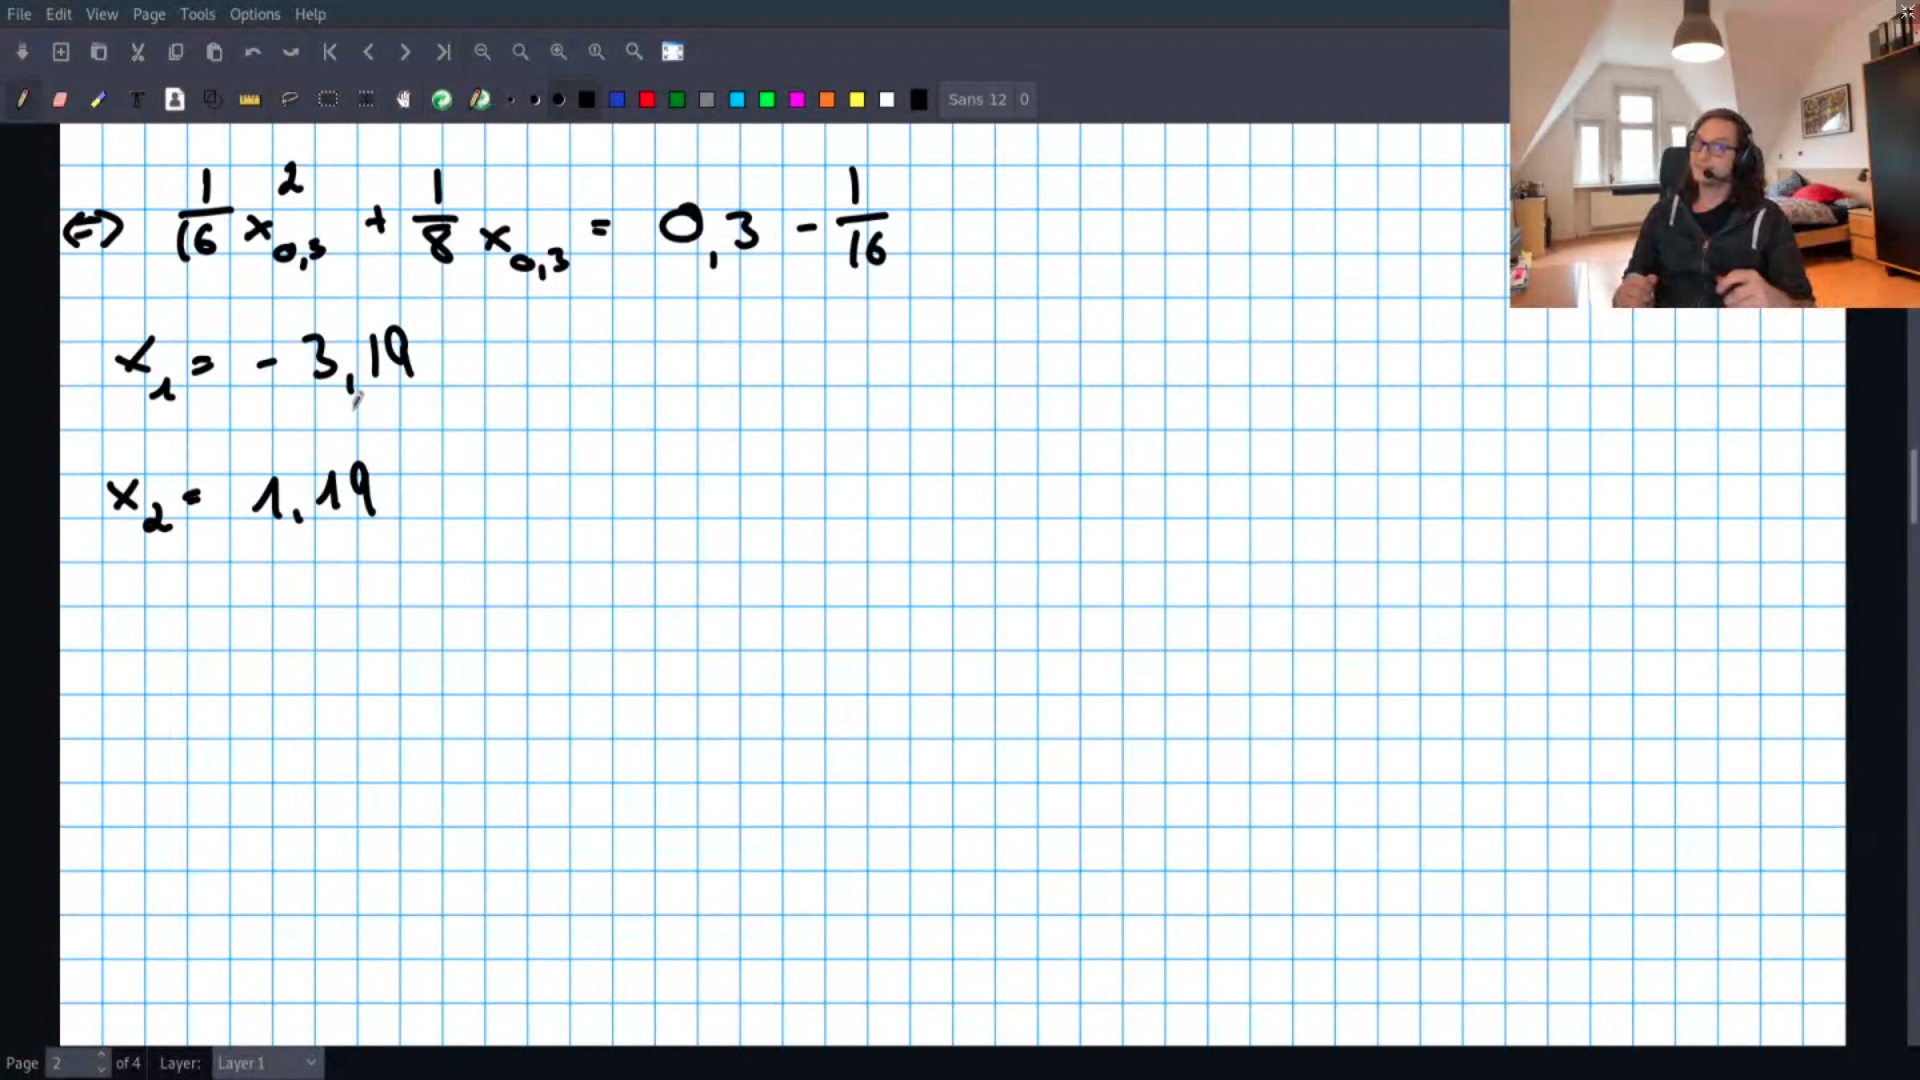 File Edit View Page Tools Options Help
Sans 12 0
⇔ 1/16 x²_0,3 + 1/8 x_0,3 = 0,3 - 1/16
x_1 = - 3,19
x_2 = 1,19
Page 2 of 4 Layer: Layer 1